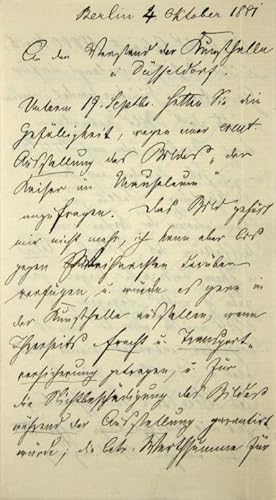 Berlin 4 Oktober 1881
An den Vorstand der Kunsthalle
u Düsseldorf.
Unterm 19. Septbr. hatten Sie die
Gefälligkeit, wegen einer event.
Ausstellung des Bildes „der
Kaiser im Mausoleum"
anzufragen. Das Bild gehört
mir nicht mehr, ich kann aber bis
gegen Weihnachten darüber
verfügen, u. würde es gern in
der Kunsthalle ausstellen, wenn
Ihrerseits Fracht u. Transport-
versicherung getragen, u. für
die Nichtbeschädigung des Bildes
während der Ausstellung garantirt
würde; die Werthsumme für